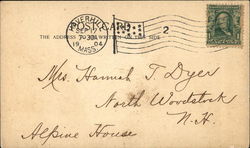 POST CARD
HAVERHILL
SEP 17
7-30A
1904
MASS.
2
THE ADDRESS TO BE WRITTEN ON THIS SIDE
Mrs. Hannah T. Dyer
North Woodstock
N.H.
Alpine House